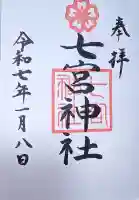 奉拝
七宮神社
令和七年一月八日